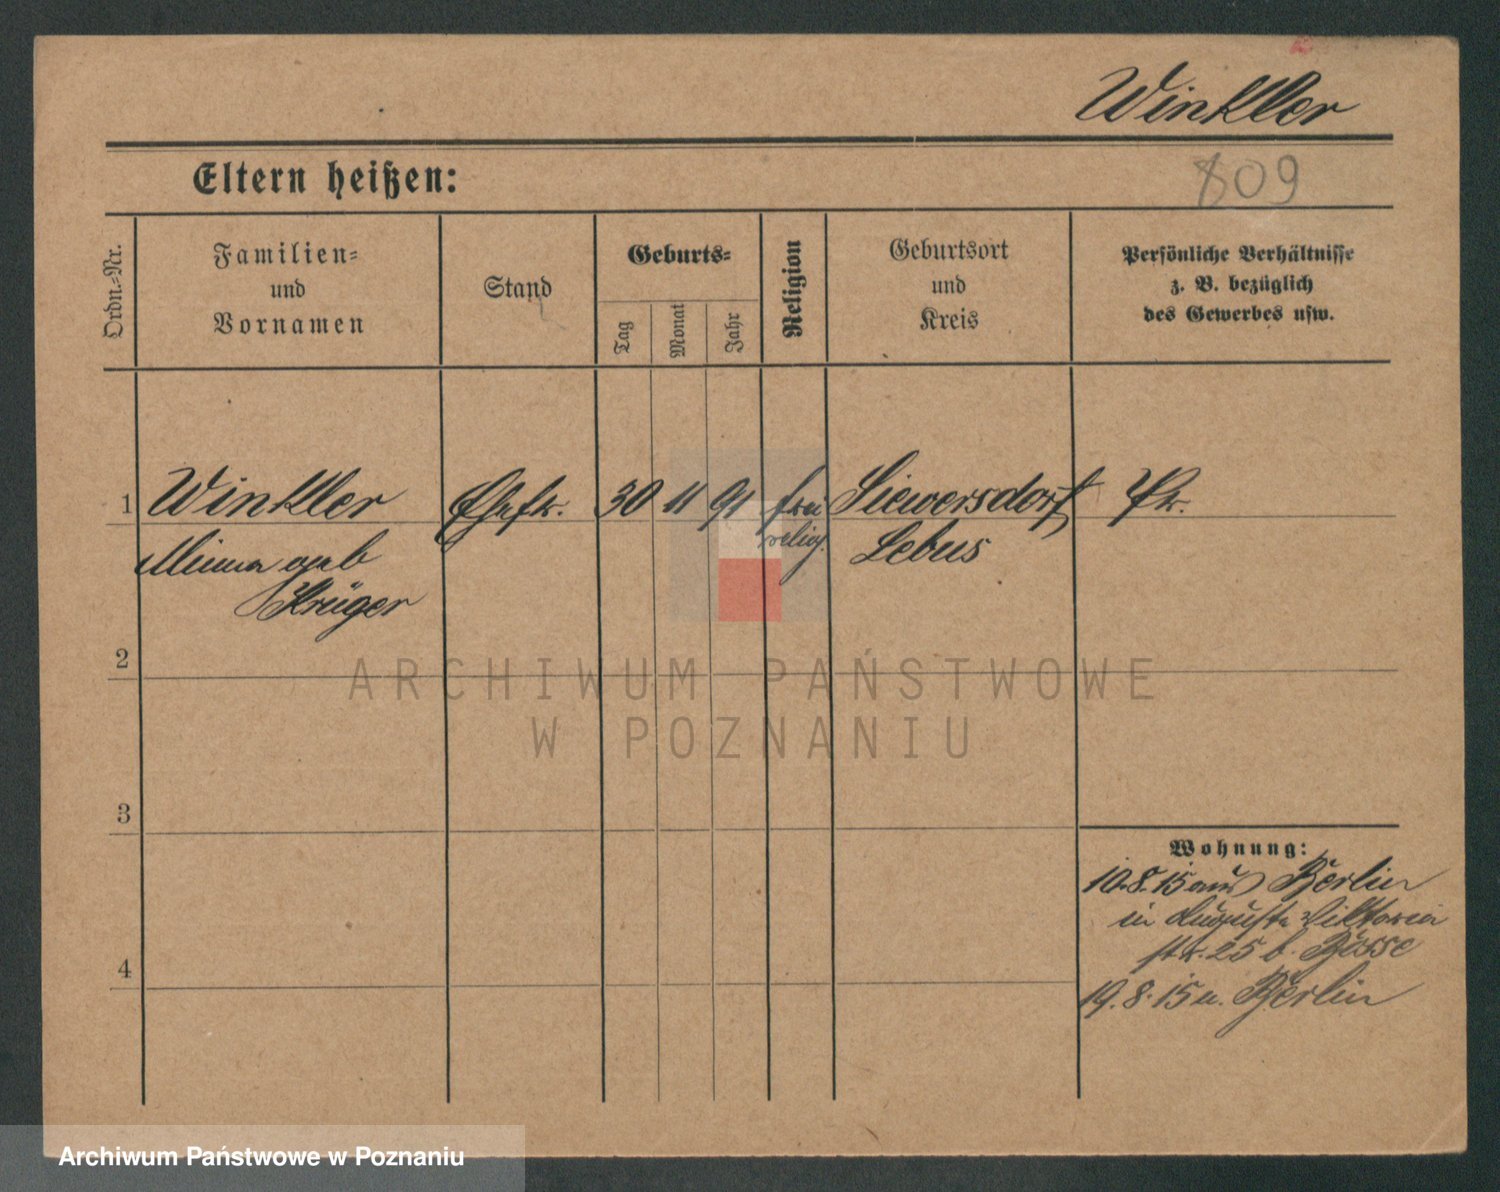 Winkler
809
Eltern heißen:
Ordn.-Nr.
Familien-
und
Vornamen
Stand
Geburts-
Tag
Monat
Jahr
Religion
Geburtsort
und
Kreis
Persönliche Verhältnisse
z. B. bezüglich
des Gewerbes usw.
1 Winkler Ehefr. 30 11 91 frei Siewersdorf Pr.
relig. Lebus
Minna geb
Krüger
2
ARCHIWUM PAŃSTWOWE
W POZNANIU
3
Wohnung:
10.8.15 aus Berlin
in Auguste Viktoria
str. 25 b.
4
19.8.15 n. Berlin
Archiwum Państwowe w Poznaniu